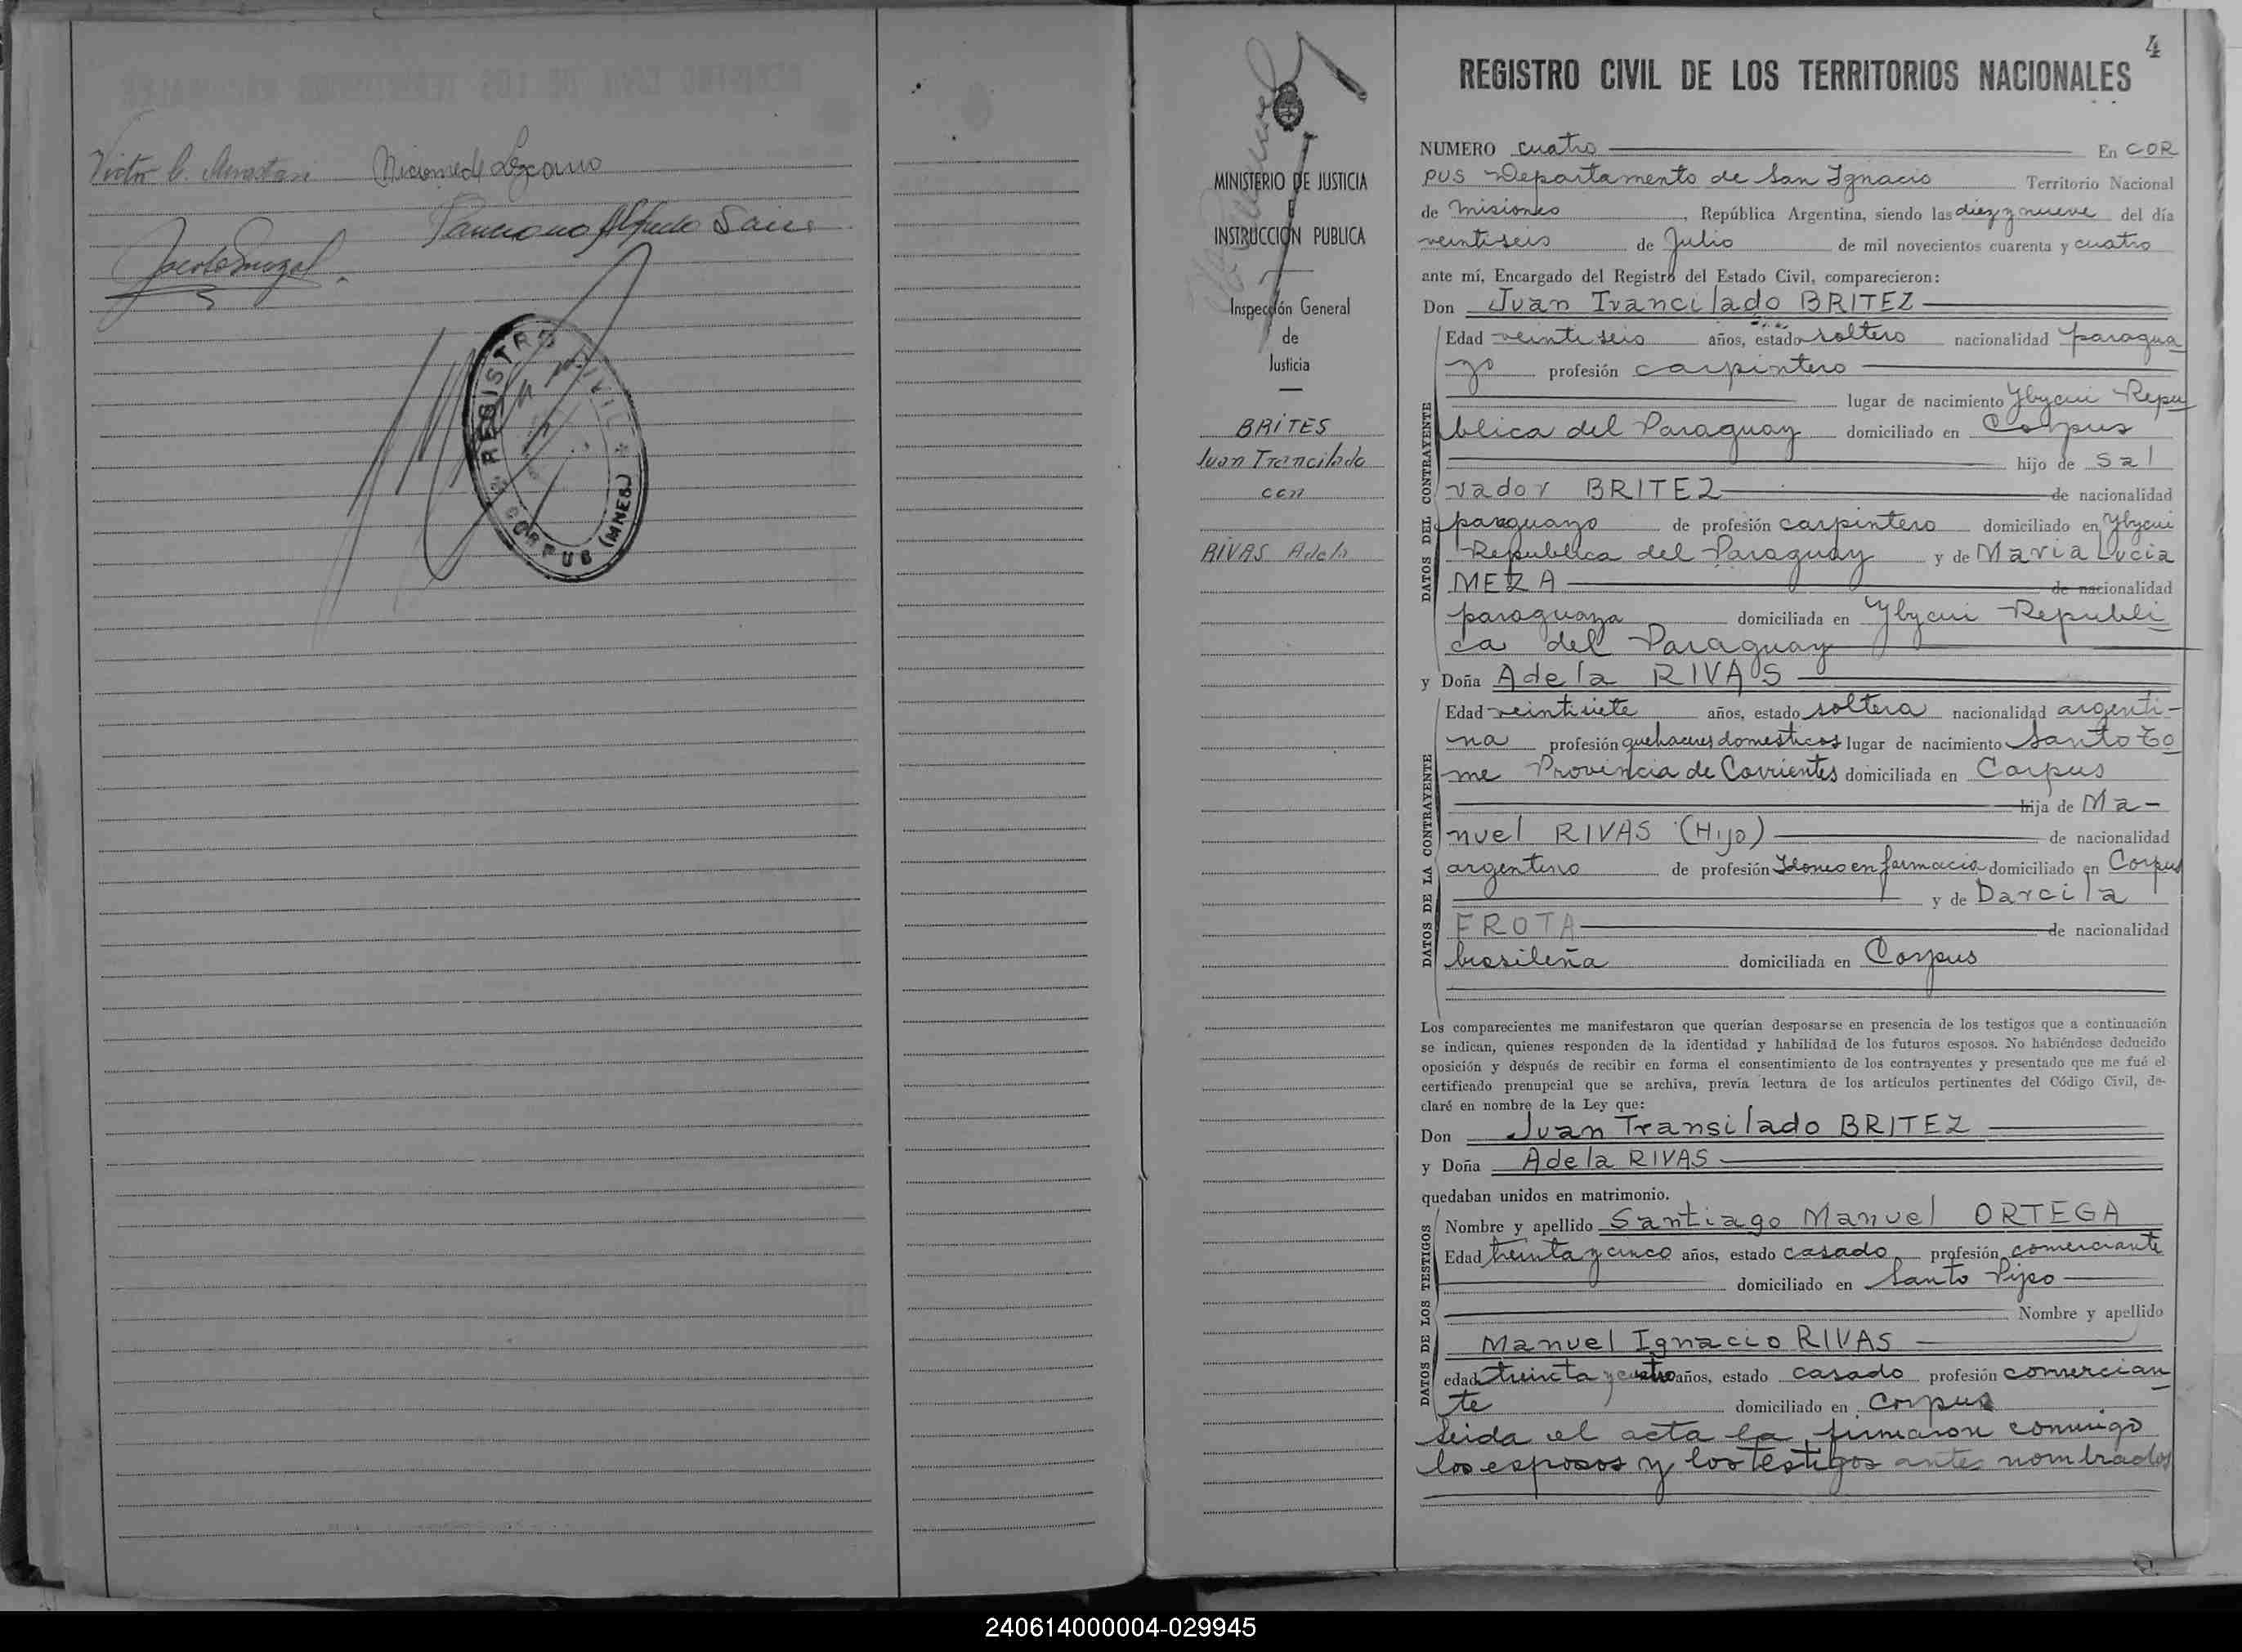 Victor
Nicomede Lezcano
Alfredo
REGISTRO CIVIL
CORPUS (MNES.)
4
MINISTERIO DE JUSTICIA
E
INSTRUCCION PUBLICA
Inspección General
de
Justicia
BRITES
Juan Trancilado
con
RIVAS Adela
REGISTRO CIVIL DE LOS TERRITORIOS NACIONALES
NUMERO cuatro En COR
PUS Departamento de San Ignacio Territorio Nacional
de Misiones, República Argentina, siendo las diez y nueve del día
veintiseis de Julio de mil novecientos cuarenta y cuatro
ante mí, Encargado del Registro del Estado Civil, comparecieron:
Don Juan Trancilado BRITEZ
DATOS DEL CONTRAYENTE
Edad veinti seis años, estado soltero nacionalidad paragua
yo profesión carpintero
lugar de nacimiento Ybycui Repu
blica del Paraguay domiciliado en Corpus
hijo de Sal
vador BRITEZ de nacionalidad
paraguayo de profesión carpintero domiciliado en Ybycui
Republica del Paraguay y de Maria Lucia
MEZA de nacionalidad
paraguaya domiciliada en Ybycui Republi
ca del Paraguay
y Doña Adela RIVAS
DATOS DE LA CONTRAYENTE
Edad veintisiete años, estado soltera nacionalidad argenti-
na profesión quehaceres domesticos lugar de nacimiento Santo To
me Provincia de Corrientes domiciliada en Corpus
hija de Ma-
nuel RIVAS (Hijo) de nacionalidad
argentino de profesión Idoneo en farmacia domiciliado en Corpus
y de Darcila
FROTA de nacionalidad
brasileña domiciliada en Corpus
Los comparecientes me manifestaron que querían desposarse en presencia de los testigos que a continuación
se indican, quienes responden de la identidad y habilidad de los futuros esposos. No habiéndose deducido
oposición y después de recibir en forma el consentimiento de los contrayentes y presentado que me fué el
certificado prenupcial que se archiva, previa lectura de los artículos pertinentes del Código Civil, de-
claré en nombre de la Ley que:
Don Juan Transilado BRITEZ
y Doña Adela RIVAS
quedaban unidos en matrimonio.
DATOS DE LOS TESTIGOS
Nombre y apellido Santiago Manuel ORTEGA
Edad treinta y cinco años, estado casado profesión comerciante
domiciliado en Santo Pipo
Nombre y apellido
Manuel Ignacio RIVAS
edad treinta y cuatro años, estado casado profesión comercian
te domiciliado en Corpus
Leida el acta la firmaron conmigo
los esposos y los testigos antes nombrados
240614000004-029945